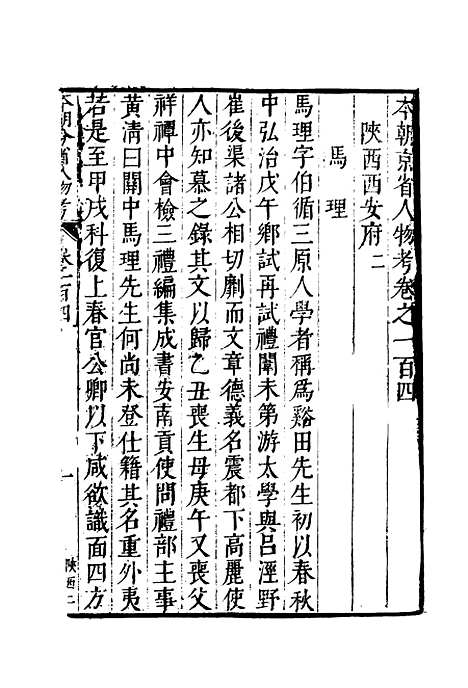 本朝京省人物考卷之一百四
陝西西安府二
馬理
馬理字伯循三原人學者稱為谿田先生初以春秋
中弘治戊午鄉試再試禮闈未第游太學與呂涇野
崔後渠諸公相切劘而文章德義名震都下高麗使
人亦知慕之錄其文以歸乙丑喪生母庚午又喪父
祥禫中會檢三禮編集成書安南貢使問禮部主事
黃清曰關中馬理先生何尚未登仕籍其名重外夷
若是至甲戌科復上春官公卿以下咸欲識面四方
本朝分省人物考
卷之一百四
一
陝西二